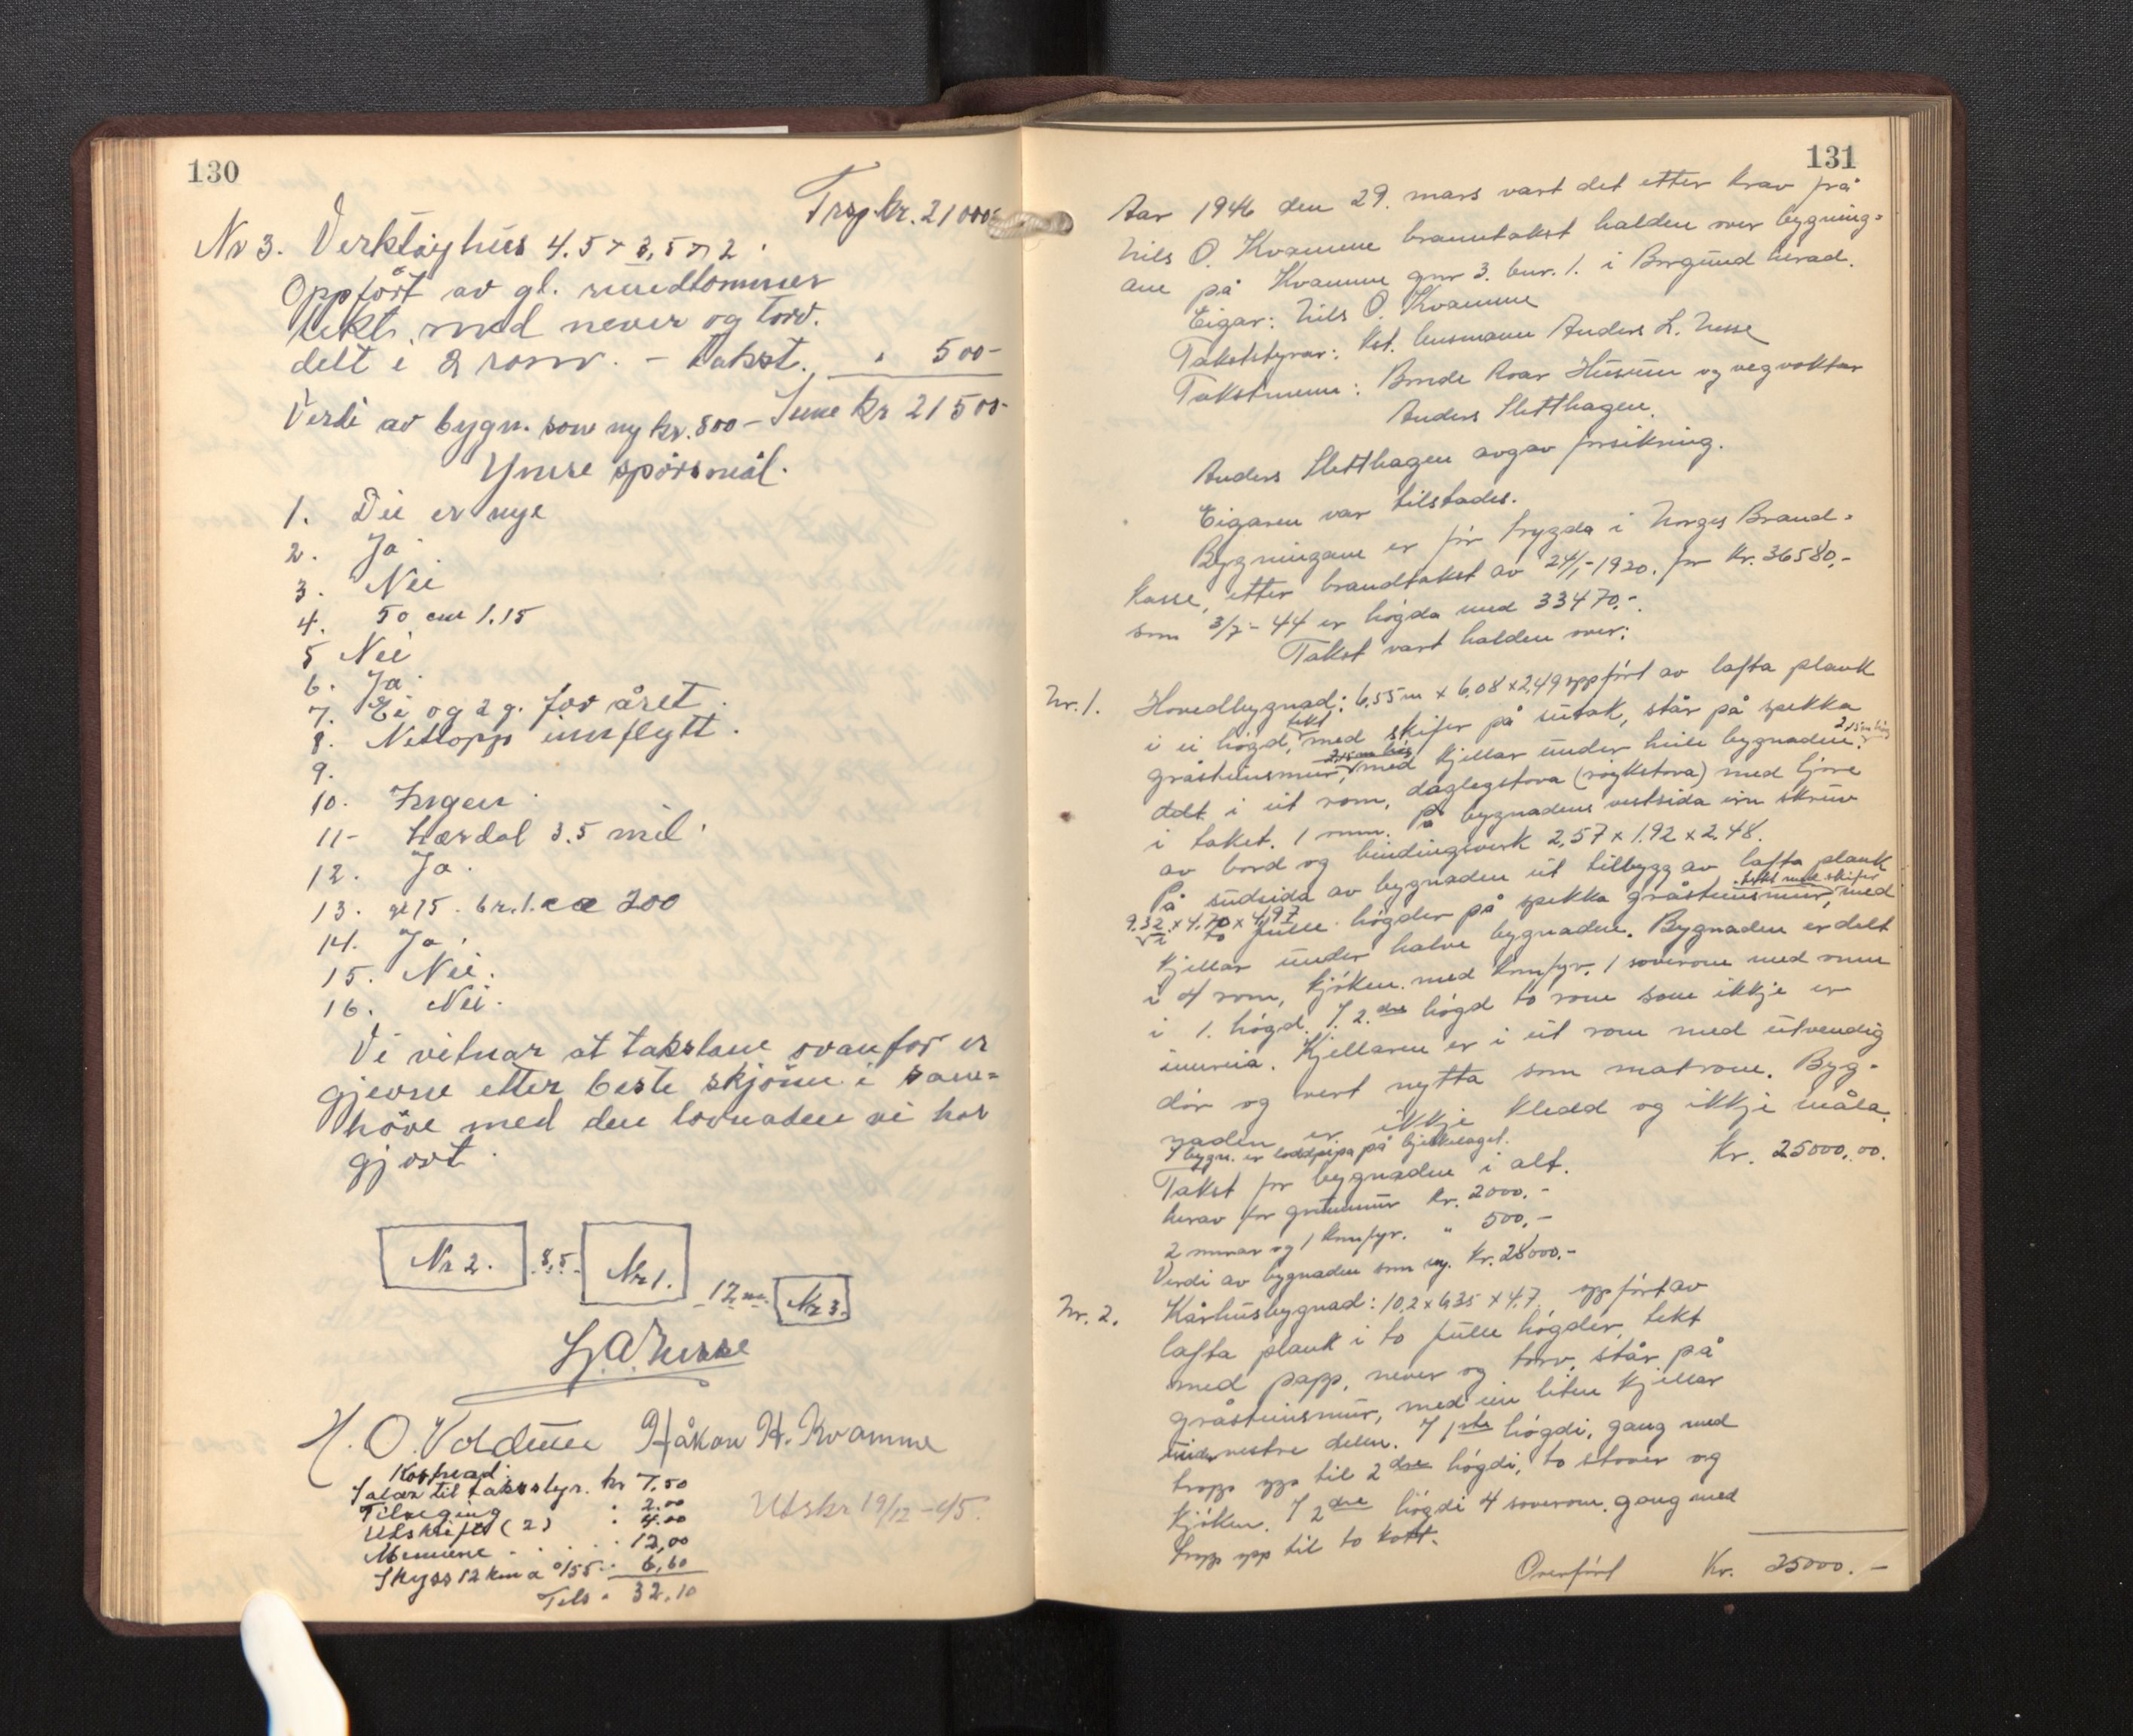 130
Trsp kr. 21000-
Nr 3. Verktöyhus 4.5 x 3,5 x 2.
Oppfört av gl. rundtommer
tekt med never og torv.
delt i 2 rom. - Takst. " 500-
Verdi av bygn. som ny kr. 800 - Sum kr 21500-
Ymse spörsmål.
1. Dei er nye
2. Ja
3. Nei
4. 50 cm 1.15
5 Nei
6. Ja.
7. Ei og 2 g. for året.
8. Nettopp innflytt.
9.
10. Ingen.
11- Lærdal 3.5 mil.
12. Ja.
13. br. 1. ca 200
14. Ja.
15. Nei.
16. Nei.
Vi vitnar at takstane ovanfor er
gjevne etter beste skjönn i sam=
höve med den lovnaden vi har
gjort.
Nr 2. 8,5 Nr 1. 12 m. Nr 3.
L. A. Nesse
H. O. Voldum Håkon H. Kvamme
Kostnad:
Salær til takststyr. kr 7,50
Tilseging " 2.00
Utskrift (2) " 4.00
Mennene . . . . 12,00
Skyss 12 km a 0/55 " 6,60
Tils " 32,10
Utskr 19/12-45.
131
Aar 1946 den 29. mars vart det etter krav frå
Nils O. Kvamme branntakst halden over bygning=
ane på Kvamme gnr 3. bnr. 1. i Borgund herad.
Eigar: Nils O. Kvamme
Takststyrar: Kst. lensmann Anders L. Nesse
Takstmenn: Bonde Roar Husum og vegvoktar
Anders Sletthagen.
Anders Sletthagen avgav forsikring.
Eigaren var tilstades.
Bygningane er för trygda i Norges Brand=
kasse, etter brandtakst av 24/1-1920. for kr. 36580,-
som 3/7-44 er högda med 33470,-.
Takst vart halden over:
Nr. 1. Hovedbygnad: 6,55 m x 6,08 x 2,49 oppfört av lafta plank
i ei högd, tekt med skifer på sutak, står på spekka
gråsteinsmur, med kjellar under heile bygnaden. 2,15 m hög
delt i eit rom, daglegstova (röykstova) med ljore
i taket. 1 omn. På bygnadens vestsida ein skruv
av bord og bindingsverk 2,57 x 1.92 x 2.48.
På sudsida av bygnaden eit tilbygg av lafta plank
9.32 x 4.70 x 4,97 to fulle högder på spekka gråsteinsmur, tekt med skifer med
kjellar under halve bygnaden. Bygnaden er delt
i 4 rom, kjöken med komfyr. 1 soverom med omn
i 1. högd. I 2.dre högd to rom som ikkje er
innreia. Kjellaren er i eit rom med utvendig
dör og vert nytta som matrom. Byg-
naden er ikkje kledd og ikkje måla.
I bygn. er loddpipa på bjelkelaget.
Takst for bygnaden i alt. Kr. 25000,00.
herav for grunnmur kr. 2000,-
2 omnar og 1 komfyr. " 500,-
Verdi av bygnaden som ny. kr. 28000,-
Nr. 2. Kårhusbygnad: 10,2 x 6,35 x 4,7, oppfört av
lafta plank i to fulle högder, tekt
med papp, never og torv, står på
gråsteinsmur, med ein liten kjellar
under vestre delen. I 1ste högdi, gang med
tropp opp til 2dre högdi, to stover og
kjöken. I 2dre högdi 4 soverom, gang med
tropp opp til to kott.
Overfört Kr. 25000.-